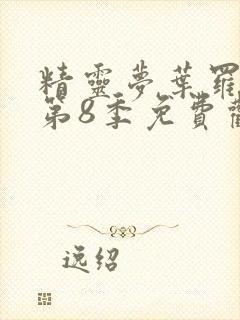 精靈夢葉羅
第8季免費
逸绍